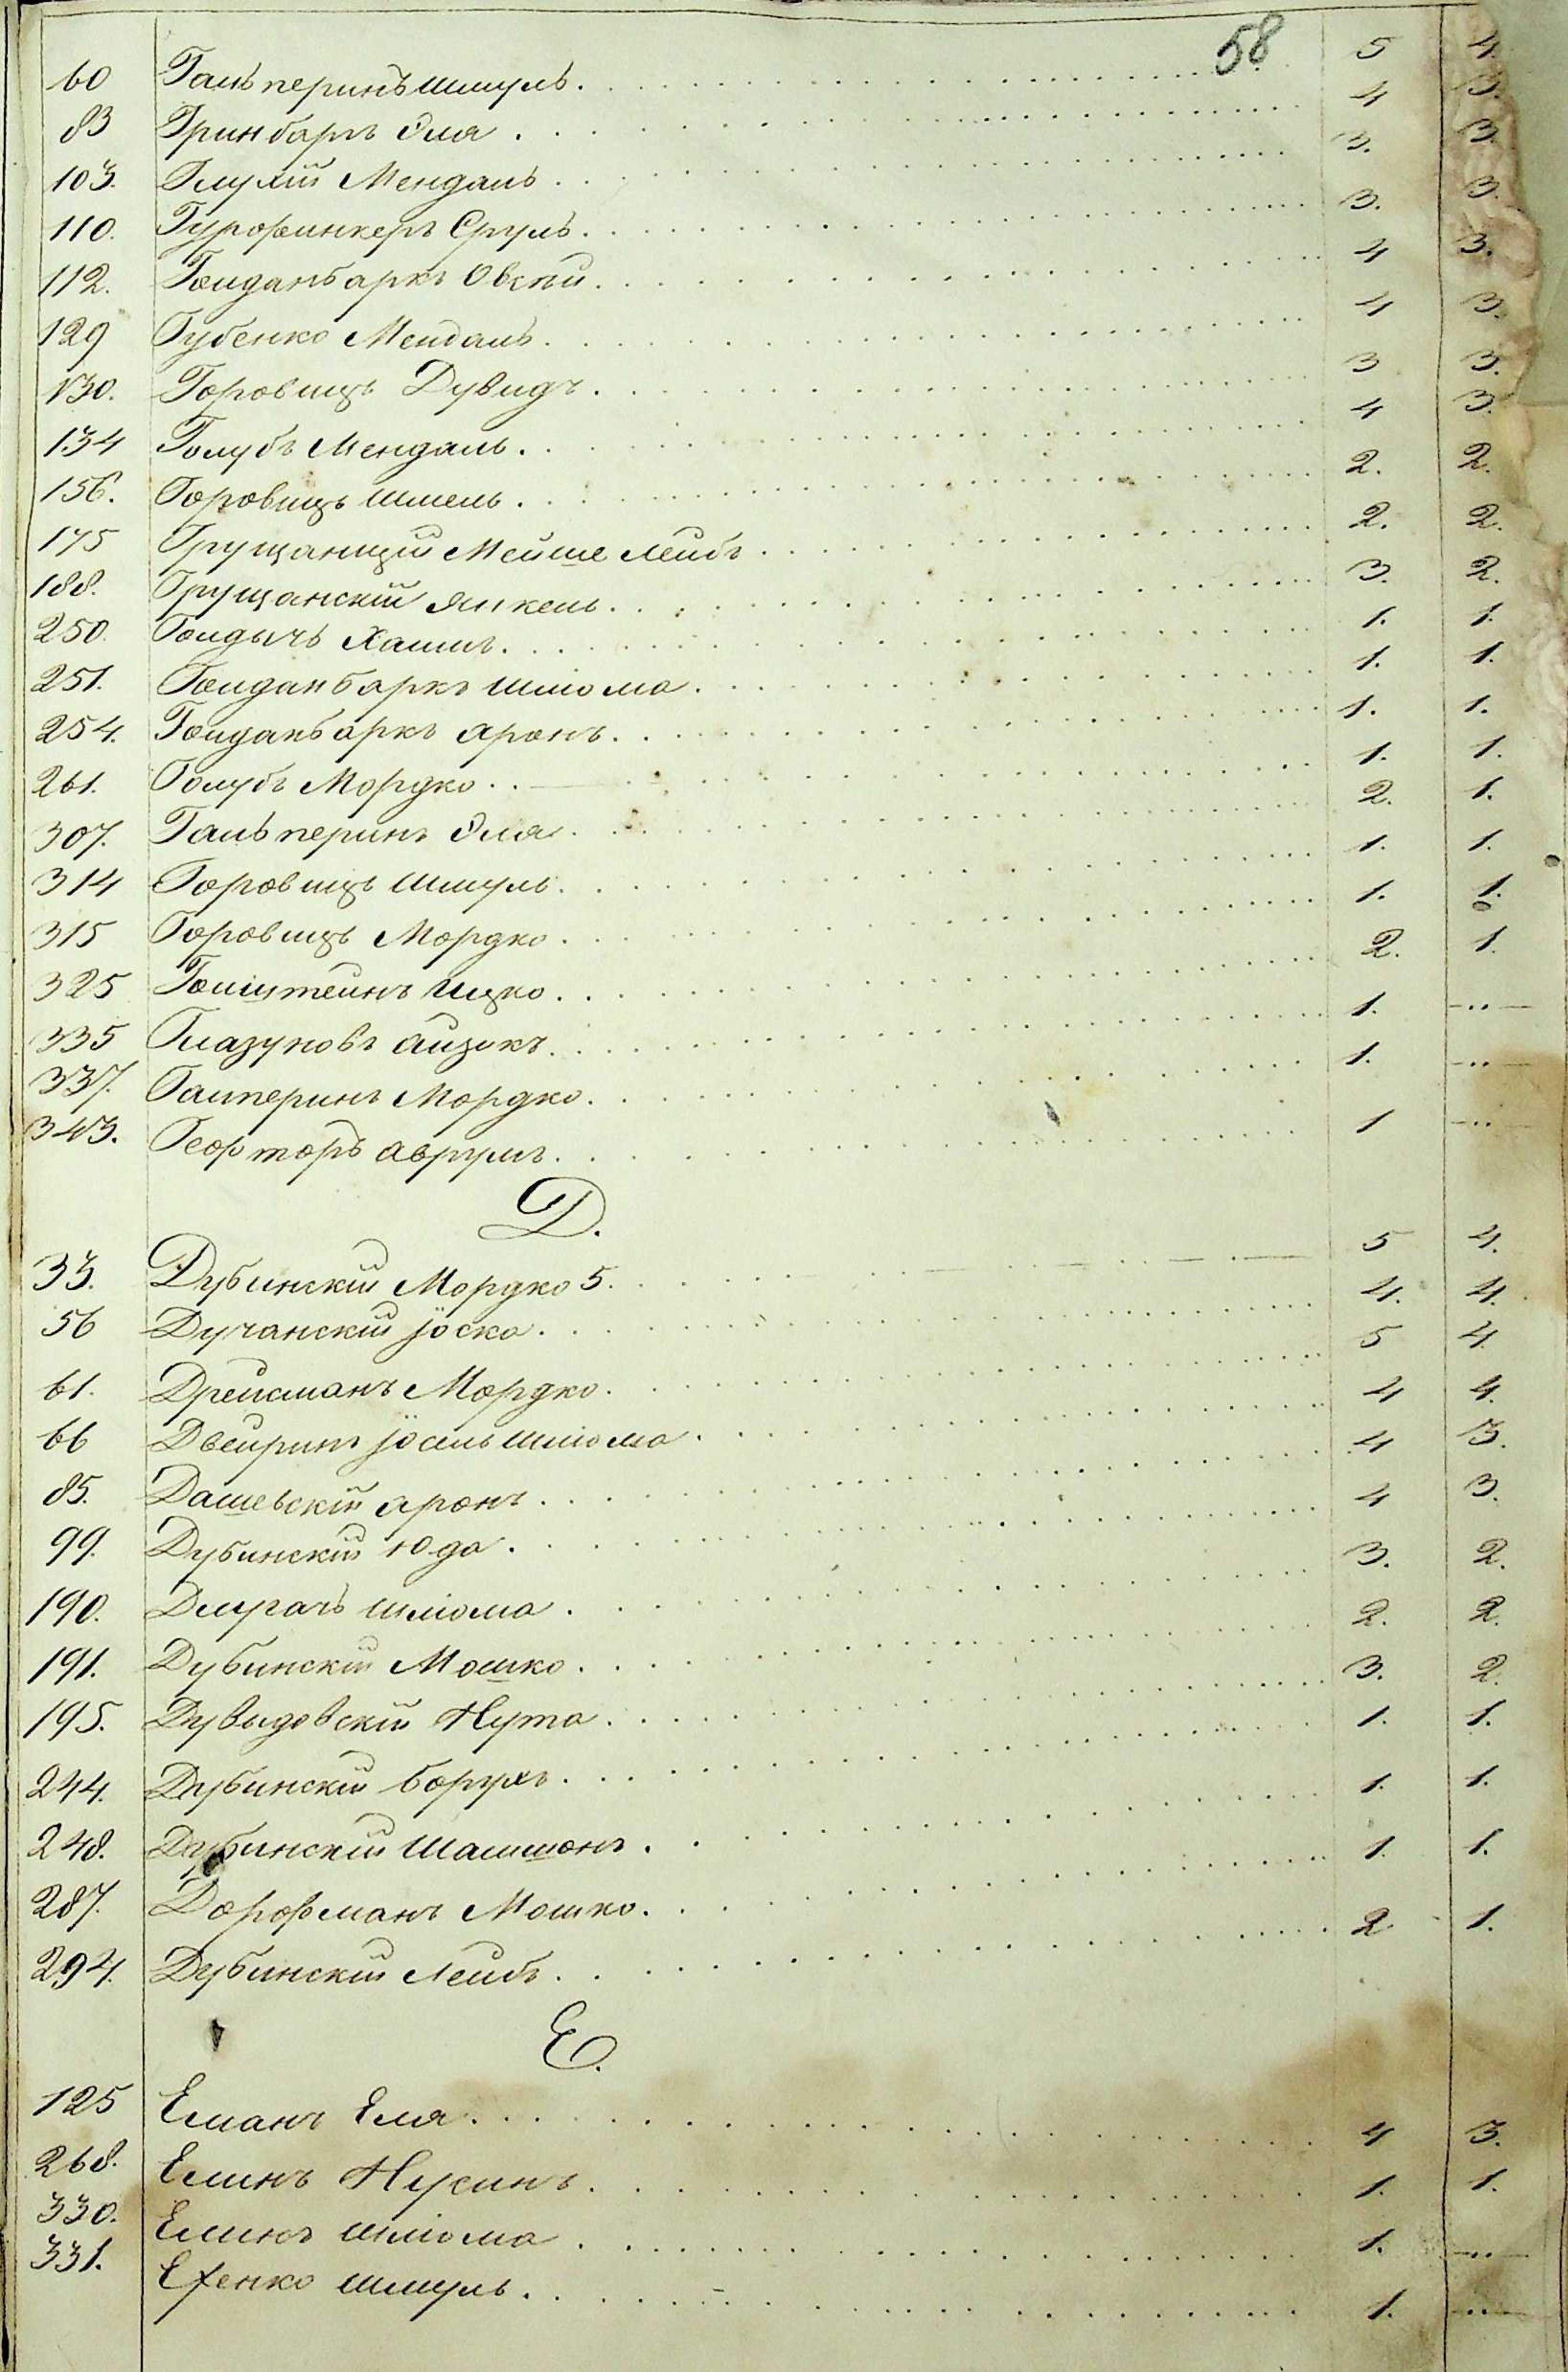 58
60 Гальперинъ Шмуль. 5 4.
83 Гринбаръ Эля. 4 3.
103. Глухій Мендаль. 3. 3.
110. Гурфинкеръ Сруль. 3. 3.
112. Голданбаркъ Овсей. 4 3.
129 Губенко Мендаль. 4 3.
130. Горовицъ Дувидъ. 3 3.
134 Голубъ Мендаль. 4 3.
156. Горовицъ Шмель. 2. 2.
175 Грущанщій Мейше Лейбъ. 2. 2.
188. Грущанскій Янкель. 3. 2.
250. Голдычъ Хаимъ. 1. 1.
251. Голданбаркъ Шліома. 1. 1.
254. Голданбаркъ Аронъ. 1. 1.
261. Голубъ Мордко. 1. 1.
307. Гальперинъ Эля. 2. 1.
314 Горовицъ Шмуль. 1. 1.
315 Горовицъ Мордко. 1. 1.
325 Голштейнъ Ицко. 2. 1.
335 Глазуновъ Айзикъ. 1.
337. Галперинъ Мордко. 1.
343. Аврумъ. 1
Д.
33. Дубинскій Мордко 5. 5 4.
56 Дучанскій Іоско. 4. 4.
61. Дрейсманъ Мордко. 5 4
66 Двейринъ Іосель Шліома. 4 4.
85. Дашевскій Аронъ. 4 3.
99. Дубинскій Юда. 4 3.
190. Шліома. 3. 2.
191. Дубинскій Мошко. 2. 2.
195. Дувыдовскій Нута. 3. 2.
244. Дубинскій Борухъ. 1. 1.
248. Дубинскій Шамшонъ. 1. 1.
287. Дорфманъ Мошко. 1. 1.
294. Дубинскій Лейбъ. 2 1.
Е.
125 Елманъ Еля. 4 3.
268. Елинъ Нусинъ. 1. 1.
330. Елинъ Шліома. 1.
331. Ефенко Шмуль. 1.